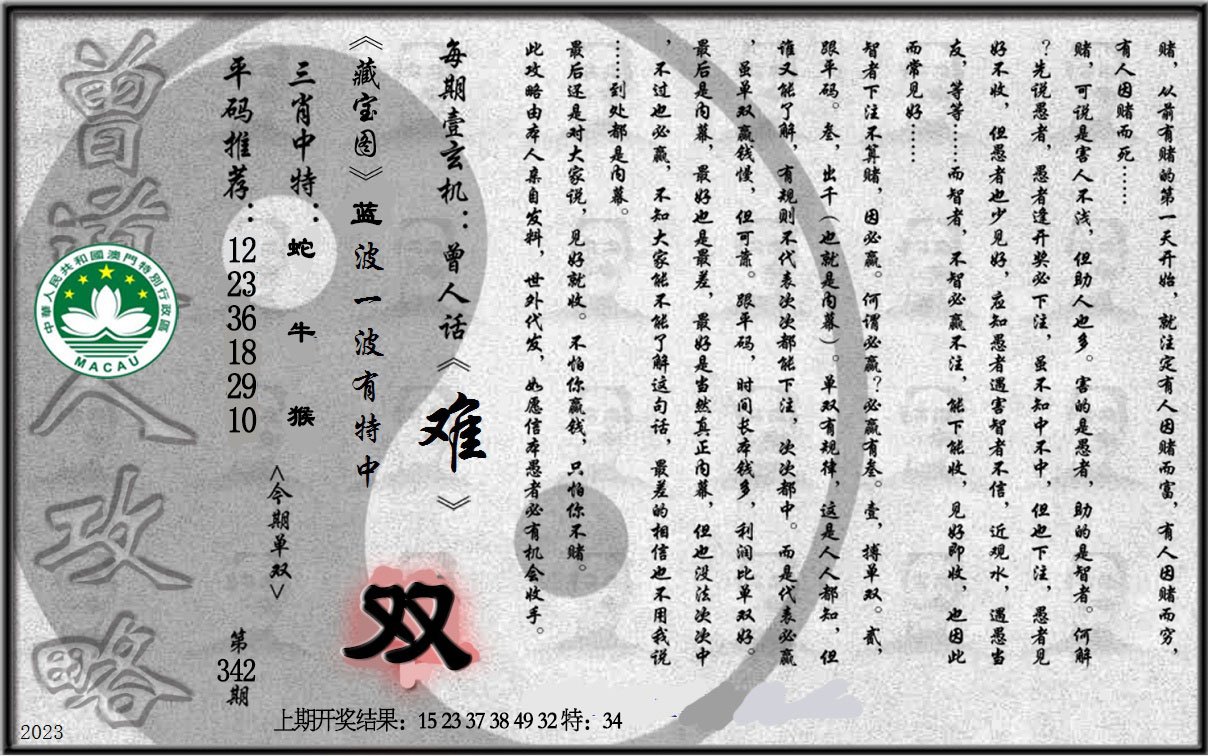 赌，从前有赌的第一天开始，就注定有人因赌而富，有人因赌而穷，
有人因赌而死……
赌，可说是害人不浅，但助人也多。害的是愚者，助的是智者。何解
？先说愚者，愚者逢开奖必下注，虽不知中不中，但也下注，愚者见
好不收，但愚者也少见好，应知愚者遇害智者不信，近观水，遇愚当
友，等等……而智者，不智必赢不注，能下能收，见好即收，也因此
而常见好……
智者下注不算赌，因必赢。何谓必赢？必赢有叁。壹，搏单双。贰，
跟平码。叁，出千（也就是内幕）。单双有规律，这是人人都知，但
谁又能了解，有规则不代表次次都能下注，次次都中。而是代表必赢
，虽单双赢钱慢，但可靠。跟平码，时间长本钱多，利润比单双好。
最后是内幕，最好也是最差，最好是当然真正内幕，但也没法次次中
，不过也必赢，不知大家能不能了解这句话，最差的相信也不用我说
……到处都是内幕。
最后还是对大家说，见好就收。不怕你赢钱，只怕你不赌。
此攻略由本人亲自发料，世外代发，如愿信本愚者必有机会收手。
每期壹玄机：曾人话《难》
《藏宝图》蓝波一波有特中
双
三肖中特：蛇 牛 猴
<今期单双>
平码推荐：12 23 36 18 29 10
第342期
曾道人攻略
中華人民共和國澳門特別行政區
MACAU
上期开奖结果：15 23 37 38 49 32 特：34
2023